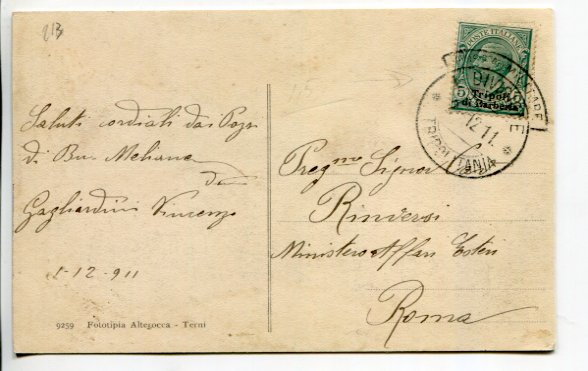 213
Saluti cordiali dai Pozzi
di Bu-Meliana
da
Gagliardini Vincenzo
1-12-911
9259 Fototipia Altegocca - Terni
POSTE ITALIANE
Tripoli
di Barberia
12.11
TRIPOLITANIA
Preg.mo Signor
Ministero Affari Esteri
Roma